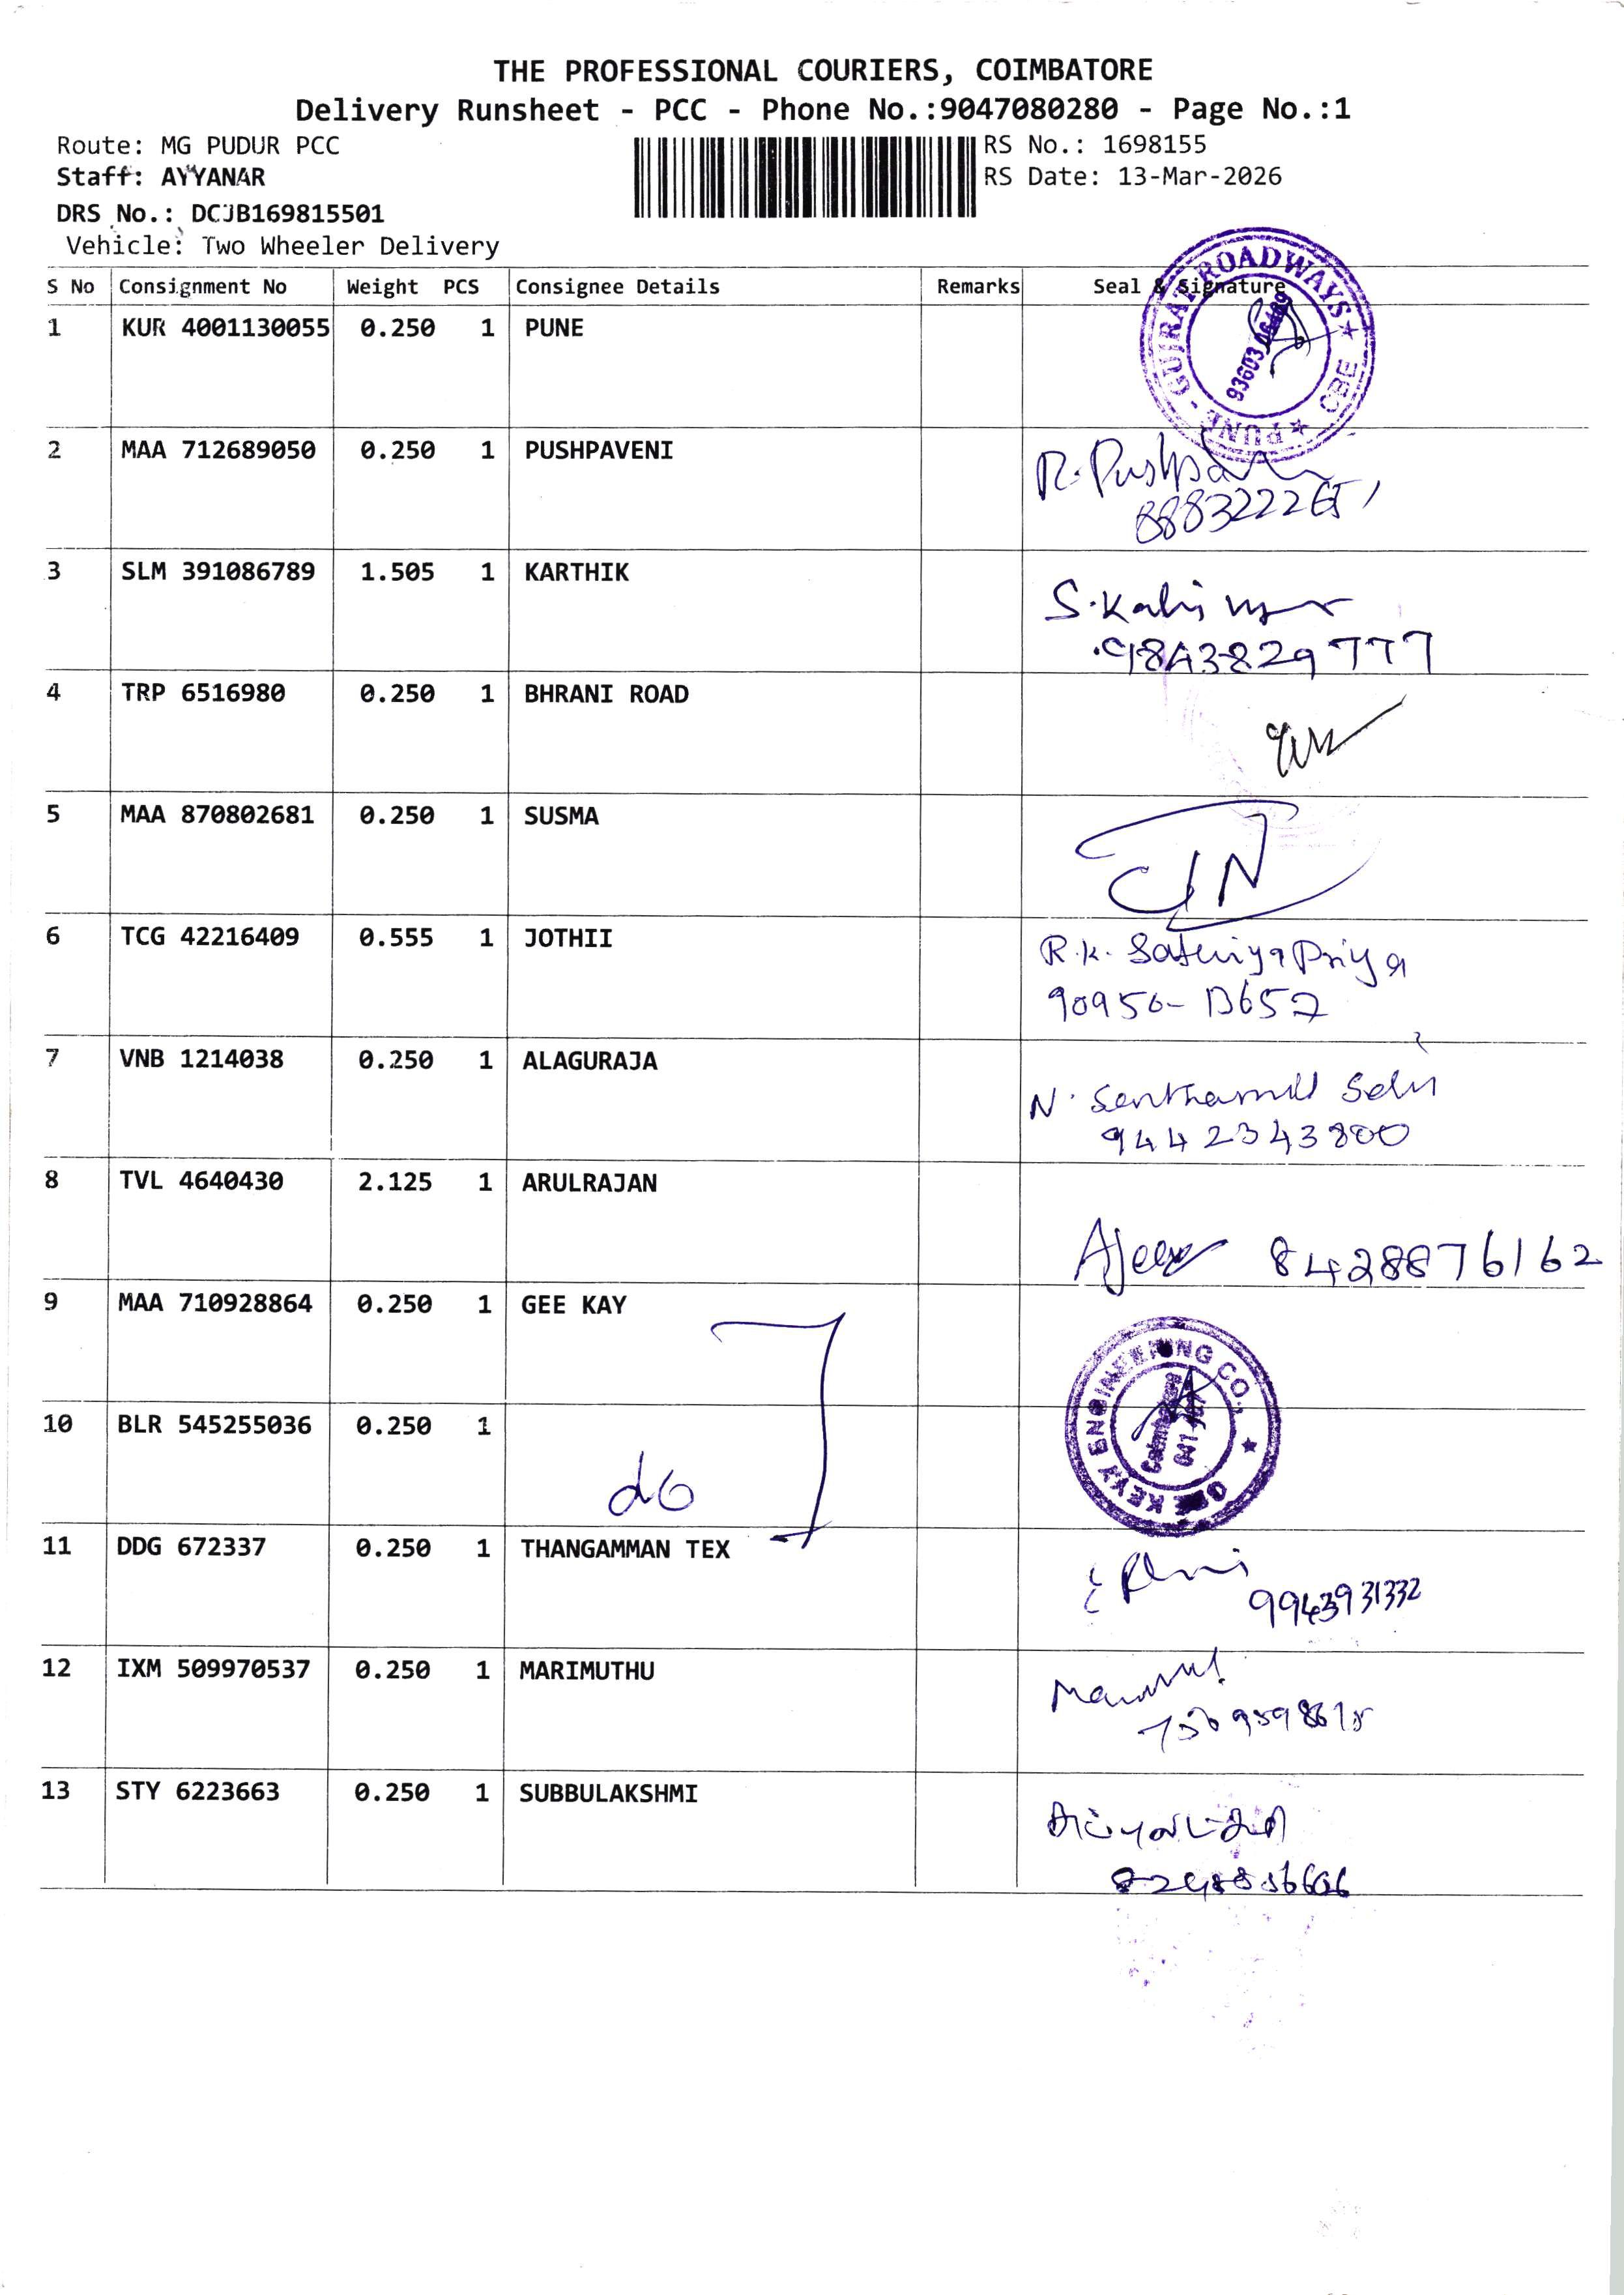 THE PROFESSIONAL COURIERS, COIMBATORE
Delivery Runsheet - PCC - Phone No.:9047080280 - Page No.:1
Route: MG PUDUR PCC
RS No.: 1698155
Staff: AYYANAR
RS Date: 13-Mar-2026
DRS No.: DCJB169815501
Vehicle: Two Wheeler Delivery
S No Consignment No Weight PCS Consignee Details Remarks Seal & Signature
1 KUR 4001130055 0.250 1 PUNE
PUNE - GUJRAT ROADWAYS ★ CBE ★
2 MAA 712689050 0.250 1 PUSHPAVENI
3 SLM 391086789 1.505 1 KARTHIK
9843829777
4 TRP 6516980 0.250 1 BHRANI ROAD
5 MAA 870802681 0.250 1 SUSMA
6 TCG 42216409 0.555 1 JOTHII
R.K.
7 VNB 1214038 0.250 1 ALAGURAJA
N.
9442343800
8 TVL 4640430 2.125 1 ARULRAJAN
8428876162
9 MAA 710928864 0.250 1 GEE KAY
ENGINEERING CO.,
10 BLR 545255036 0.250 1
do
11 DDG 672337 0.250 1 THANGAMMAN TEX
9943931332
12 IXM 509970537 0.250 1 MARIMUTHU
13 STY 6223663 0.250 1 SUBBULAKSHMI